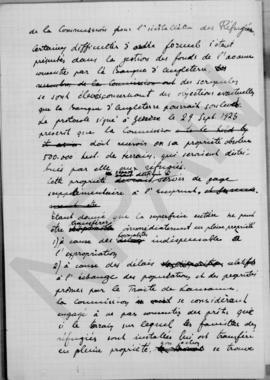 de la Commission pour l'installation des Réfugiés
Certaines difficultés d'ordre formel s'étant
présentées dans la gestion des fonds de l'avance
consentie par la Banque d'Angleterre
membres de la Commission ont des scrupules
se sont élevés concernant des objections éventuelles
que la Banque d'Angleterre pourrait soulever.
Le protocole signé à Genève le 29 Sept 1923
prescrit que la Commission
doit recevoir en sa propriété absolue
500.000 hect. de terrain, qui seraient distri
bués par elle aux réfugiés.
Cette propriété de gage
supplémentaire à l'emprunt
Étant donné que la superficie entière ne peut
être transférée immédiatement en pleine propriété
1) à cause des formalités indispensables de
l'expropriation
2) à cause des délais relatifs
à l'échange des populations et des propriétés
prévues par le Traité de Lausanne.
La Commission se considérant
engagée à ne pas consentir des prêts que
si le terrain sur lequel les familles des
réfugiés sont installées lui est transféré
en pleine propriété, se trouve